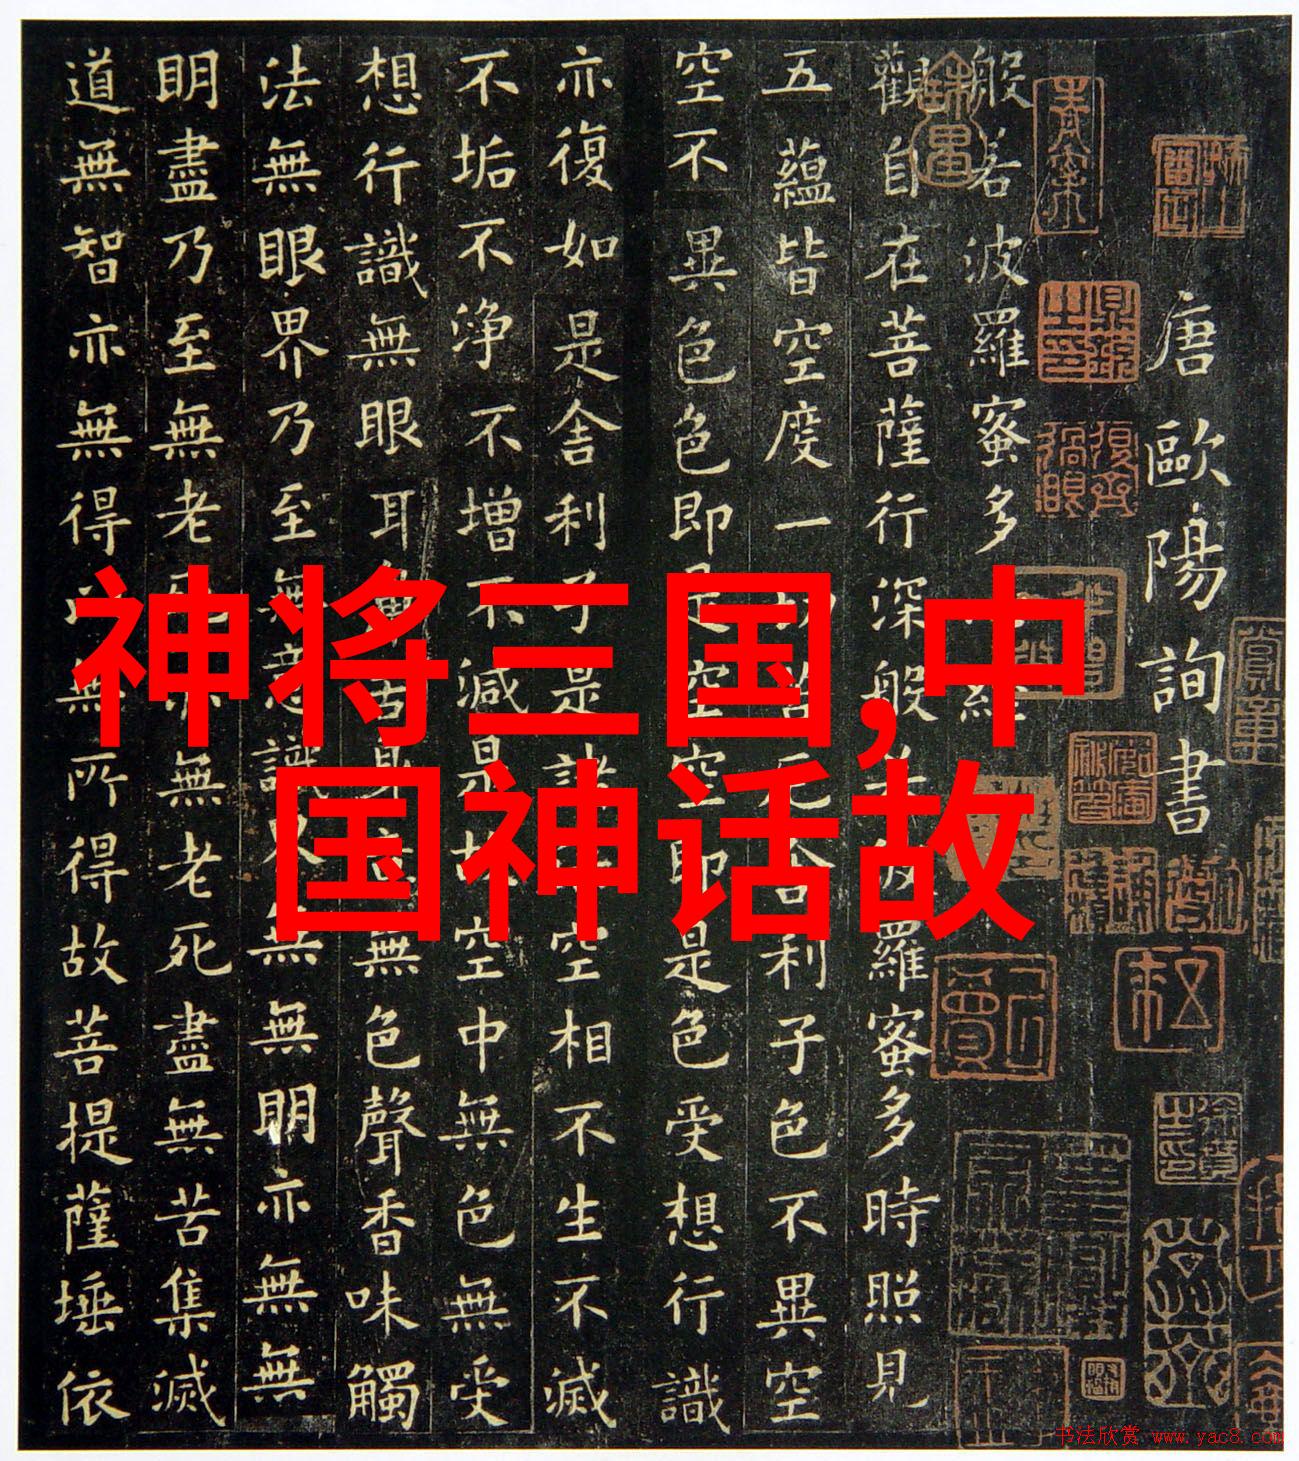 神将三国,中
国神话故
唐歐陽詢書
般若波羅蜜多心經
觀自在菩薩行深般若波羅蜜多時照見
五蘊皆空度一切苦厄舍利子色不異空
空不異色色即是空空即是色受想行識
亦復如是舍利子是諸法空相不生不滅
不垢不淨不增不減是故空中無色無受
想行識無眼耳鼻舌身意無色聲香味觸
法無眼界乃至無意識界無無明亦無無
明盡乃至無老死亦無老死盡無苦集滅
道無智亦無得以無所得故菩提薩埵依
书法欣赏 www.yac8.com